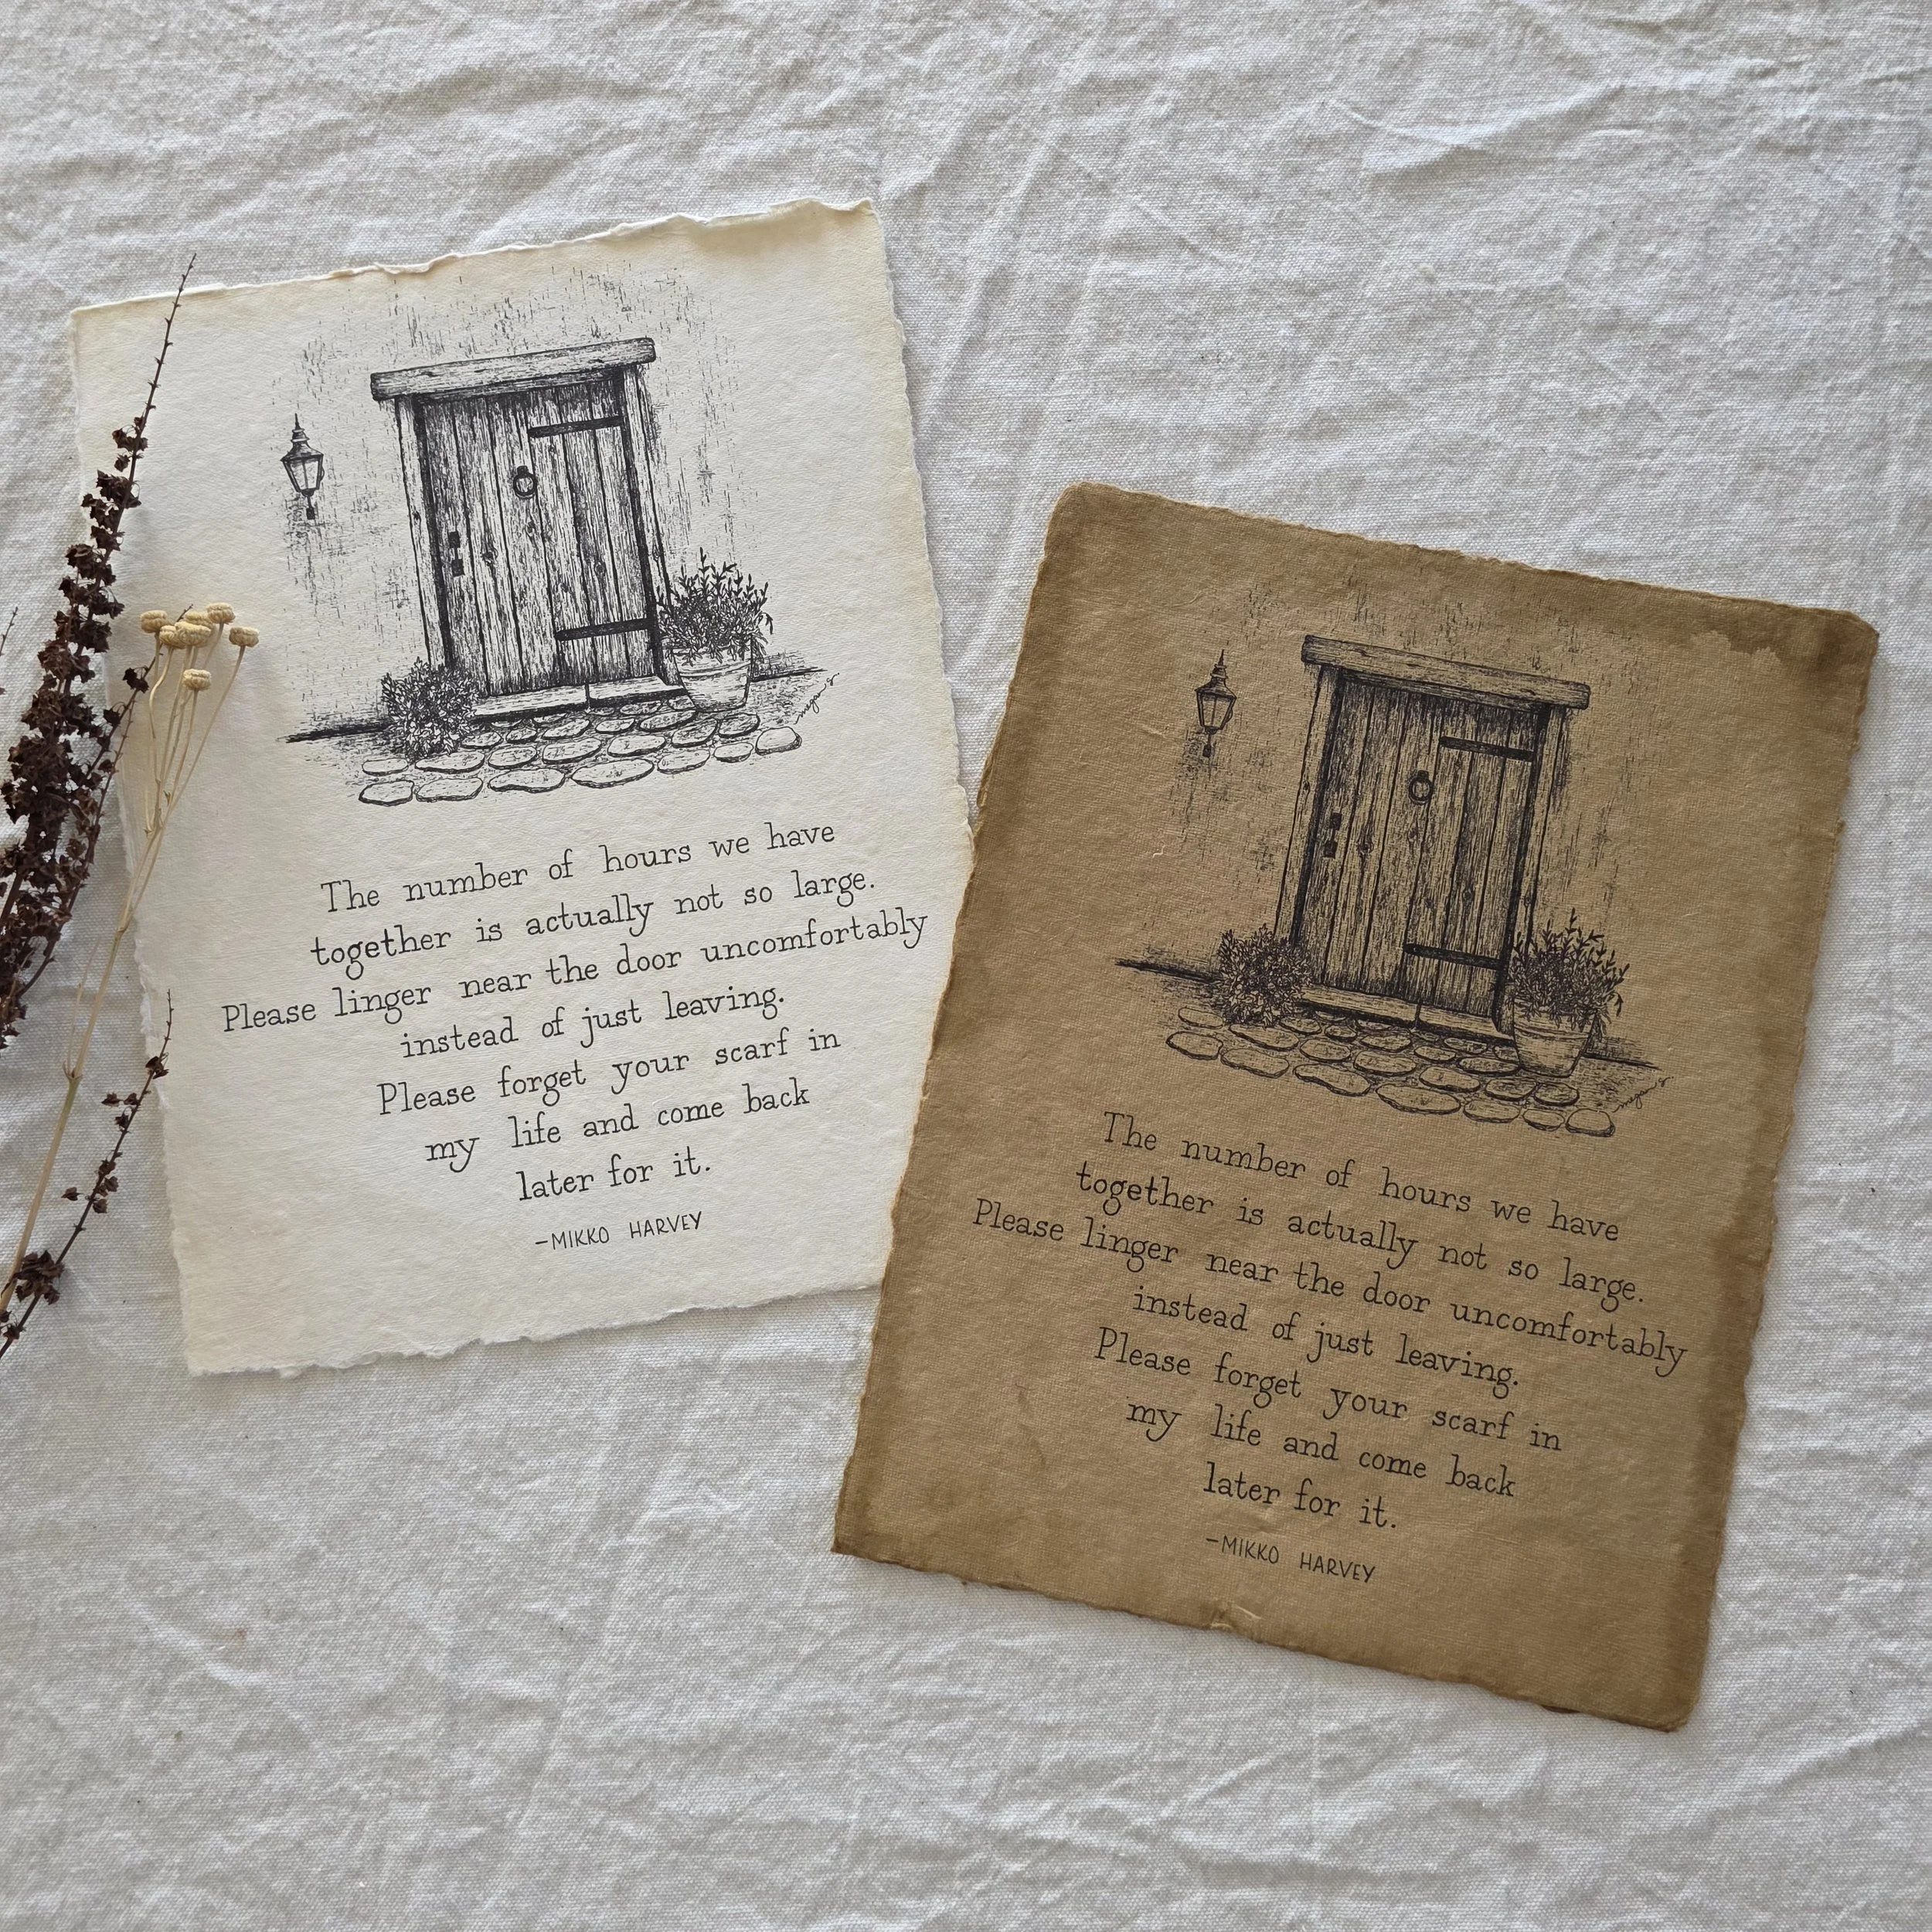 The number of hours we have
together is actually not so large.
Please linger near the door uncomfortably
instead of just leaving.
Please forget your scarf in
my life and come back
later for it.
–MIKKO HARVEY
The number of hours we have
together is actually not so large.
Please linger near the door uncomfortably
instead of just leaving.
Please forget your scarf in
my life and come back
later for it.
–MIKKO HARVEY